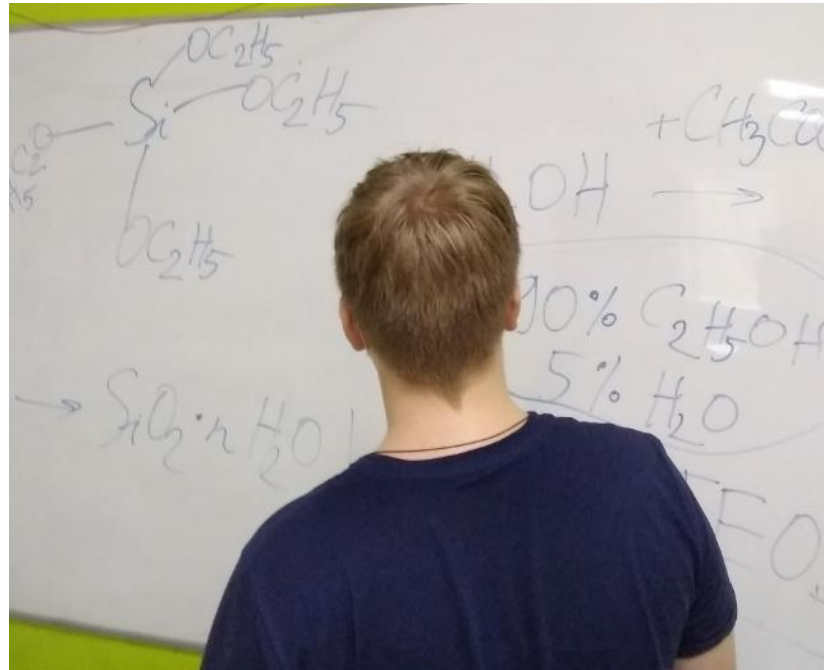 OC2H5
Si OC2H5
OC2H5
+CH3CO
OH →
90% C2H5OH
5% H2O
→ SiO2·nH2O
EO